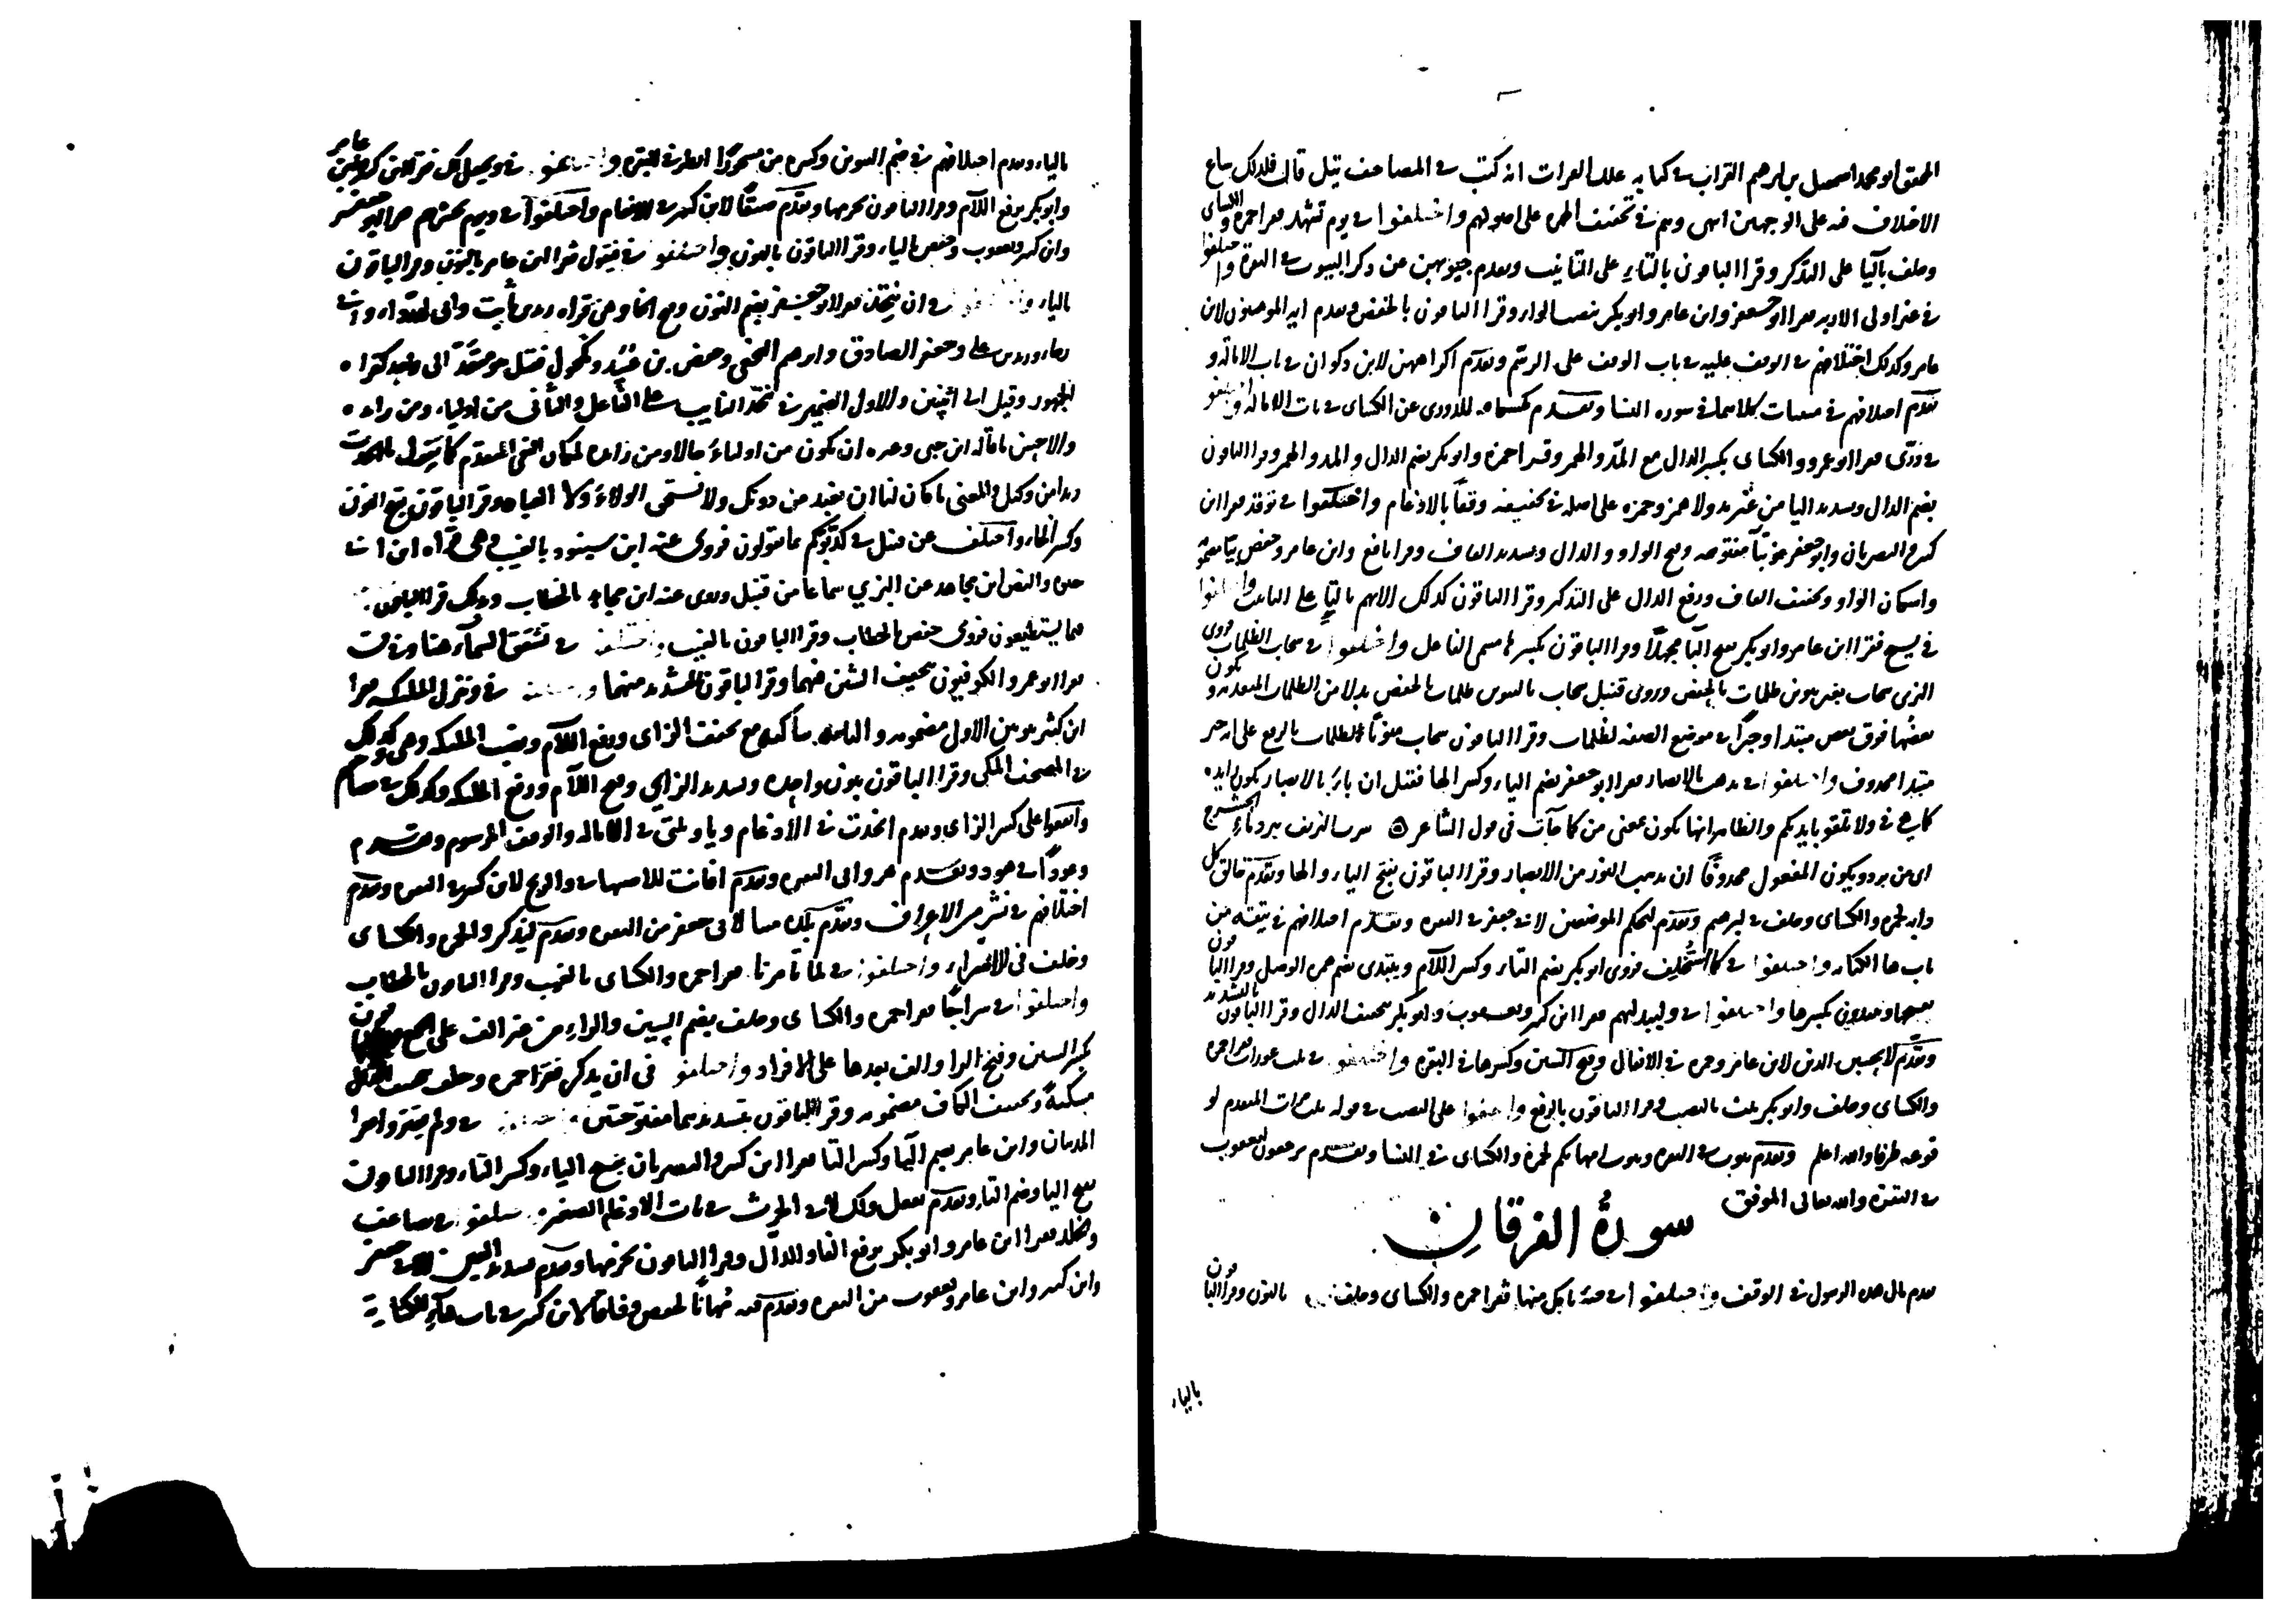 المحقق ابو محمد اسمعيل بن ابرهيم القراب في كتابه علل القراات انه كتب في المصاحف قال فلذلك ساغ
الاختلاف فيه على الوجهين انتهى وهم في تخفيف الهمزة على اصولهم واختلفوا في يوم تشهد فقرا حمزة والكسائى
وخلف باليا على التذكير وقرا الباقون بالتاء على التانيث وتقدم جيوبهن عن ذكر البيوت في البقرة واختلفوا
في غير اولى الاربة فقرا ابو جعفر وابن عامر وابو بكر بنصب الراء وقرا الباقون بالخفض وتقدم ايه المومنون لابن
عامر وكذلك اختلافهم في الوقف عليه في باب الوقف على الرسم وتقدم اكراههن لابن ذكوان في باب الامالة و
تقدم اختلافهم في مبينات كلاهما في سورة النسا وتقدم كمشكاة للدورى عن الكسائى في باب الامالة واختلفوا
في درى فقرا ابو عمرو والكسائى بكسر الدال مع المد والهمز وقرا حمزة وابو بكر بضم الدال والمد والهمز وقرا الباقون
بضم الدال وتشديد اليا من غير مد ولا همز وحمزة على اصله في تخفيفه وقفا بالادغام واختلفوا في توقد فقرا ابن
كثير والبصريان وابو جعفر بتا مفتوحة وفتح الواو والدال وتشديد القاف وقرا نافع وابن عامر وحفص بيا مضمومة
واسكان الواو وتخفيف القاف ورفع الدال على التذكير وقرا الباقون كذلك الا انهم بالتا على التانيث واختلفوا
في يسبح فقرا ابن عامر وابو بكر بفتح البا مجهلا وقرا الباقون بكسرها مسمى الفاعل واختلفوا في سحاب الظلمات فروى
البزى سحاب بغير تنوين ظلمات بالخفض وروى قنبل سحاب بالتنوين ظلمات بالخفض بدلا من الظلمات المتقدمة ويكون
بعضها فوق بعض مبتدا وخبرا في موضع الصفة لظلمات وقرا الباقون سحاب منونا ظلمات بالرفع على انه خبر
مبتدا محذوف واختلفوا في يذهب بالابصار فقرا ابو جعفر بضم الياء وكسر الها فقيل ان باء بالابصار يكون زايدة
كما هي في ولا تلقوا بايديكم والظاهر انها يكون بمعنى من كما جآت في قول الشاعر شرب النزيف ببرد ماء الحشرج
اى من برد ويكون المفعول محذوفا ان يذهب النور من الابصار وقرا الباقون بفتح الياء والها وتقدم خالق كل
دابة لحمزة والكسائى وخلف في ابرهيم وتقدم ليحكم الموضعين لابى جعفر في البقرة وتقدم اختلافهم في يتقه من
باب ها الكناية واختلفوا في كما استخلف فروى ابو بكر بضم التاء وكسر اللام ويبتدى بضم همزة الوصل وقرا الباقون
بفتحهما ويبتدون بكسرها واختلفوا في وليبدلنهم فقرا ابن كثير ويعقوب وابو بكر بتخفيف الدال وقرا الباقون بالتشديد
وتقدم لا يحسبن الذين لابن عامر وحمزة في الانفال وفتح السين وكسرها في البقرة واختلفوا في ثلث عورات فقرا حمزة
والكسائى وخلف وابو بكر ثلث بالنصب وقرا الباقون بالرفع واتفقوا على النصب في قوله ثلث مرات المتقدم لو
قوعه ظرفا والله اعلم وتقدم بيوت في البقرة وبيوت امهاتكم لحمزة والكسائى في النسا وتقدم يرجعون ليعقوب
في البقرة والله تعالى الموفق
سورة الفرقان
تقدم مال هذا الرسول في الوقف واختلفوا في جنة ياكل منها فقرا حمزة والكسائى وخلف بالنون وقرا الباقون
بالياء
بالياء وتقدم اختلافهم في ضم التنوين وكسره من مسحورا انظر في البقرة واختلفوا في ويجعل لك فقرا ابن كثير وابن عامر
وابو بكر برفع اللام وقرا الباقون بجزمها وتقدم ضيقا لابن كثير في الانعام واختلفوا في ويوم يحشرهم فقرا ابو جعفر
وابن كثير ويعقوب وحفص بالياء وقرا الباقون بالنون واختلفوا في فيقول فقرا ابن عامر بالنون وقرا الباقون
بالياء واختلفوا في ان نتخذ فقرا ابو جعفر بضم النون وفتح الخا وهى قراة زيد بن ثابت وابى الدرداء وابى
رجاء وزيد بن على وجعفر الصادق وابرهيم النخعى وحفص بن عبيد ومكحول فقيل هو متعد الى واحد كقراة
الجمهور وقيل الى اثنين والاول الضمير في نتخذ النايب على الفاعل والثانى من اولياء ومن زايدة
والاحسن ما قاله ابن جنى وغيره ان يكون من اولياء حالا ومن زايدة لمكان النفى المتقدم كما يقول ما اتخذت
زيدا من وكيل والمعنى ما كان لنا ان نعبد من دونك ولا نستحق الولاء ولا العبادة وقرا الباقون بفتح النون
وكسر الخاء واختلف عن قنبل في كذبوكم بما تقولون فروى عنه ابن شنبوذ بالغيب وهى قراة ابن ابى
حيوة والنص ابن مجاهد عن البزي سماعا من قنبل وروى عنه ابن مجاهد بالخطاب وبذلك قرا الباقون
فما يستطيعون فروى حفص بالخطاب وقرا الباقون بالغيب واختلفوا في تشقق السماء هنا وفى ق
فقرا ابو عمرو والكوفيون بتخفيف الشين فيهما وقرا الباقون بالتشديد منهما واختلفوا في ونزل الملئكة فقرا
ابن كثير بنونين الاولى مضمومة والثانية ساكنة مع تخفيف الزاى ورفع اللام ونصب الملئكة وهى كذلك
في المصحف المكى وقرا الباقون بنون واحدة وتشديد الزاي وفتح اللام ورفع الملئكة وكذلك في مصاحفهم
واتفقوا على كسر الزاى وتقدم اتخذت في الادغام ويا ويلتى في الامالة والوقف المرسوم وتقدم
وثمودا في هود وتقدم هزوا في البقرة وتقدم افانت للاصبهانى والريح لابن كثير في البقرة وتقدم
اختلافهم في نشرا من الاعراف وتقدم بلدة ميتا لابى جعفر من البقرة وتقدم ليذكروا لحمزة والكسائى
وخلف فى الاسراء واختلفوا في لما تامرنا فقرا حمزة والكسائى بالغيب وقرا الباقون بالخطاب
واختلفوا في سراجا فقرا حمزة والكسائى وخلف بضم السين والراء من غير الف على الجمع وقرا الباقون
بكسر السين وفتح الرا والف بعدها على الافراد واختلفوا فى ان يذكر فقرا حمزة وخلف بتخفيف الذال
مسكنة وتخفيف الكاف مضمومة وقرا الباقون بتشديدهما مفتوحتين واختلفوا في ولم يقتروا فقرا
المدنيان وابن عامر بضم اليا وكسر التا وقرا ابن كثير والبصريان بفتح الياء وكسر التاء وقرا الباقون
بفتح اليا وضم التاء وتقدم يفعل ذلك لابى الحرث في باب الادغام الصغير واختلفوا في يضاعف
ويخلد فقرا ابن عامر وابو بكر برفع الفا والدال وقرا الباقون بجزمها وتقدم تشديد العين لابى جعفر
وابن كثير وابن عامر ويعقوب من البقرة وتقدم فيه مهانا لحفص وفاقا لابن كثير في باب هاء الكناية